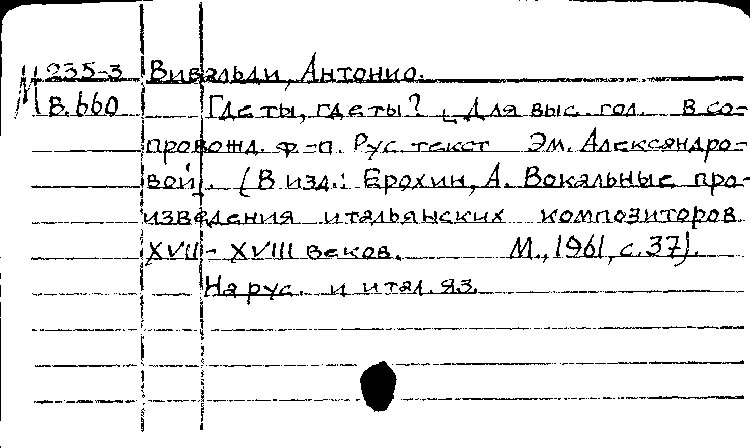 М 235-3 Вивальди, Антонио.
В.660 Где ты, где ты? [Для выс. гол. в со-
провожд. ф-п. Рус. текст Эм. Александро-
вой]. (В изд.: Ерохин, А. Вокальные про-
изведения итальянских композиторов
XVII - XVIII веков. М., 1961, с. 37).
На рус. и итал. яз.